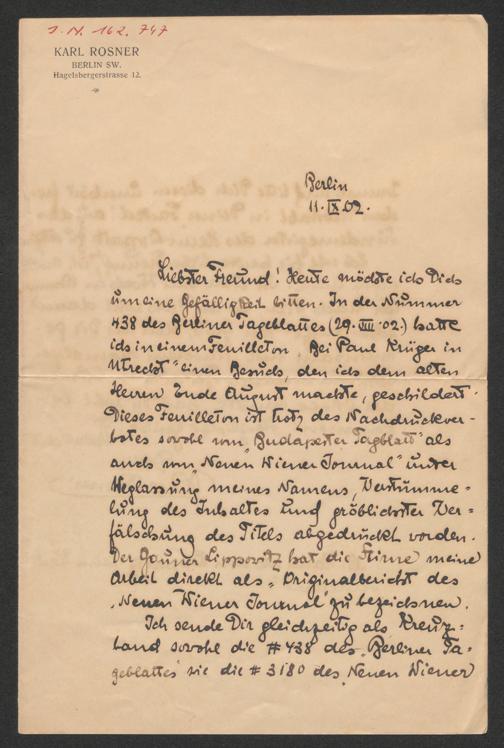 J. N. 162.747
KARL ROSNER
BERLIN SW.
Hagelsbergerstrasse 12.
Berlin
11. IX 02.
Liebster Freund! Heute möchte ich Dich
um eine Gefälligkeit bitten. In der Nummer
438 des Berliner Tageblattes (29. VIII 02.) hatte
ich in einem Feuilleton „Bei Paul Krüger in
Utrecht" einen Besuch, den ich dem alten
Herren Ende August machte, geschildert.
Dieses Feuilleton ist trotz des Nachdruckver-
botes sowohl vom „Budapester Tagblatt" als
auch vom „Neuen Wiener Journal" unter
Weglassung meines Namens, Verstümme-
lung des Inhaltes und gröblichster Ver-
fälschung des Titels abgedruckt worden.
Der Gauner Lippowitz hat die Stirne meine
Arbeit direkt als „Originalbericht des
„Neuen Wiener Journal" zu bezeichnen.
Ich sende Dir gleichzeitig als Kreuz-
band sowohl die # 438 des „Berliner Ta-
geblattes" wie die # 3180 des „Neuen Wiener